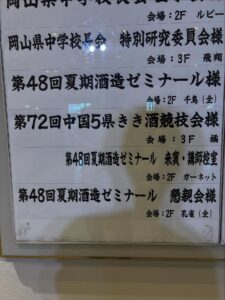 岡山県中学校長会
会場：2F ルビー
岡山県中学校長会 特別研究委員会様
会場：3F 飛翔
第48回夏期酒造ゼミナール様
会場：2F 千鳥（全）
第72回中国5県きき酒競技会様
会場：3F 橘
第48回夏期酒造ゼミナール 来賓・講師控室
会場：2F ガーネット
第48回夏期酒造ゼミナール 懇親会様
会場：2F 孔雀（全）